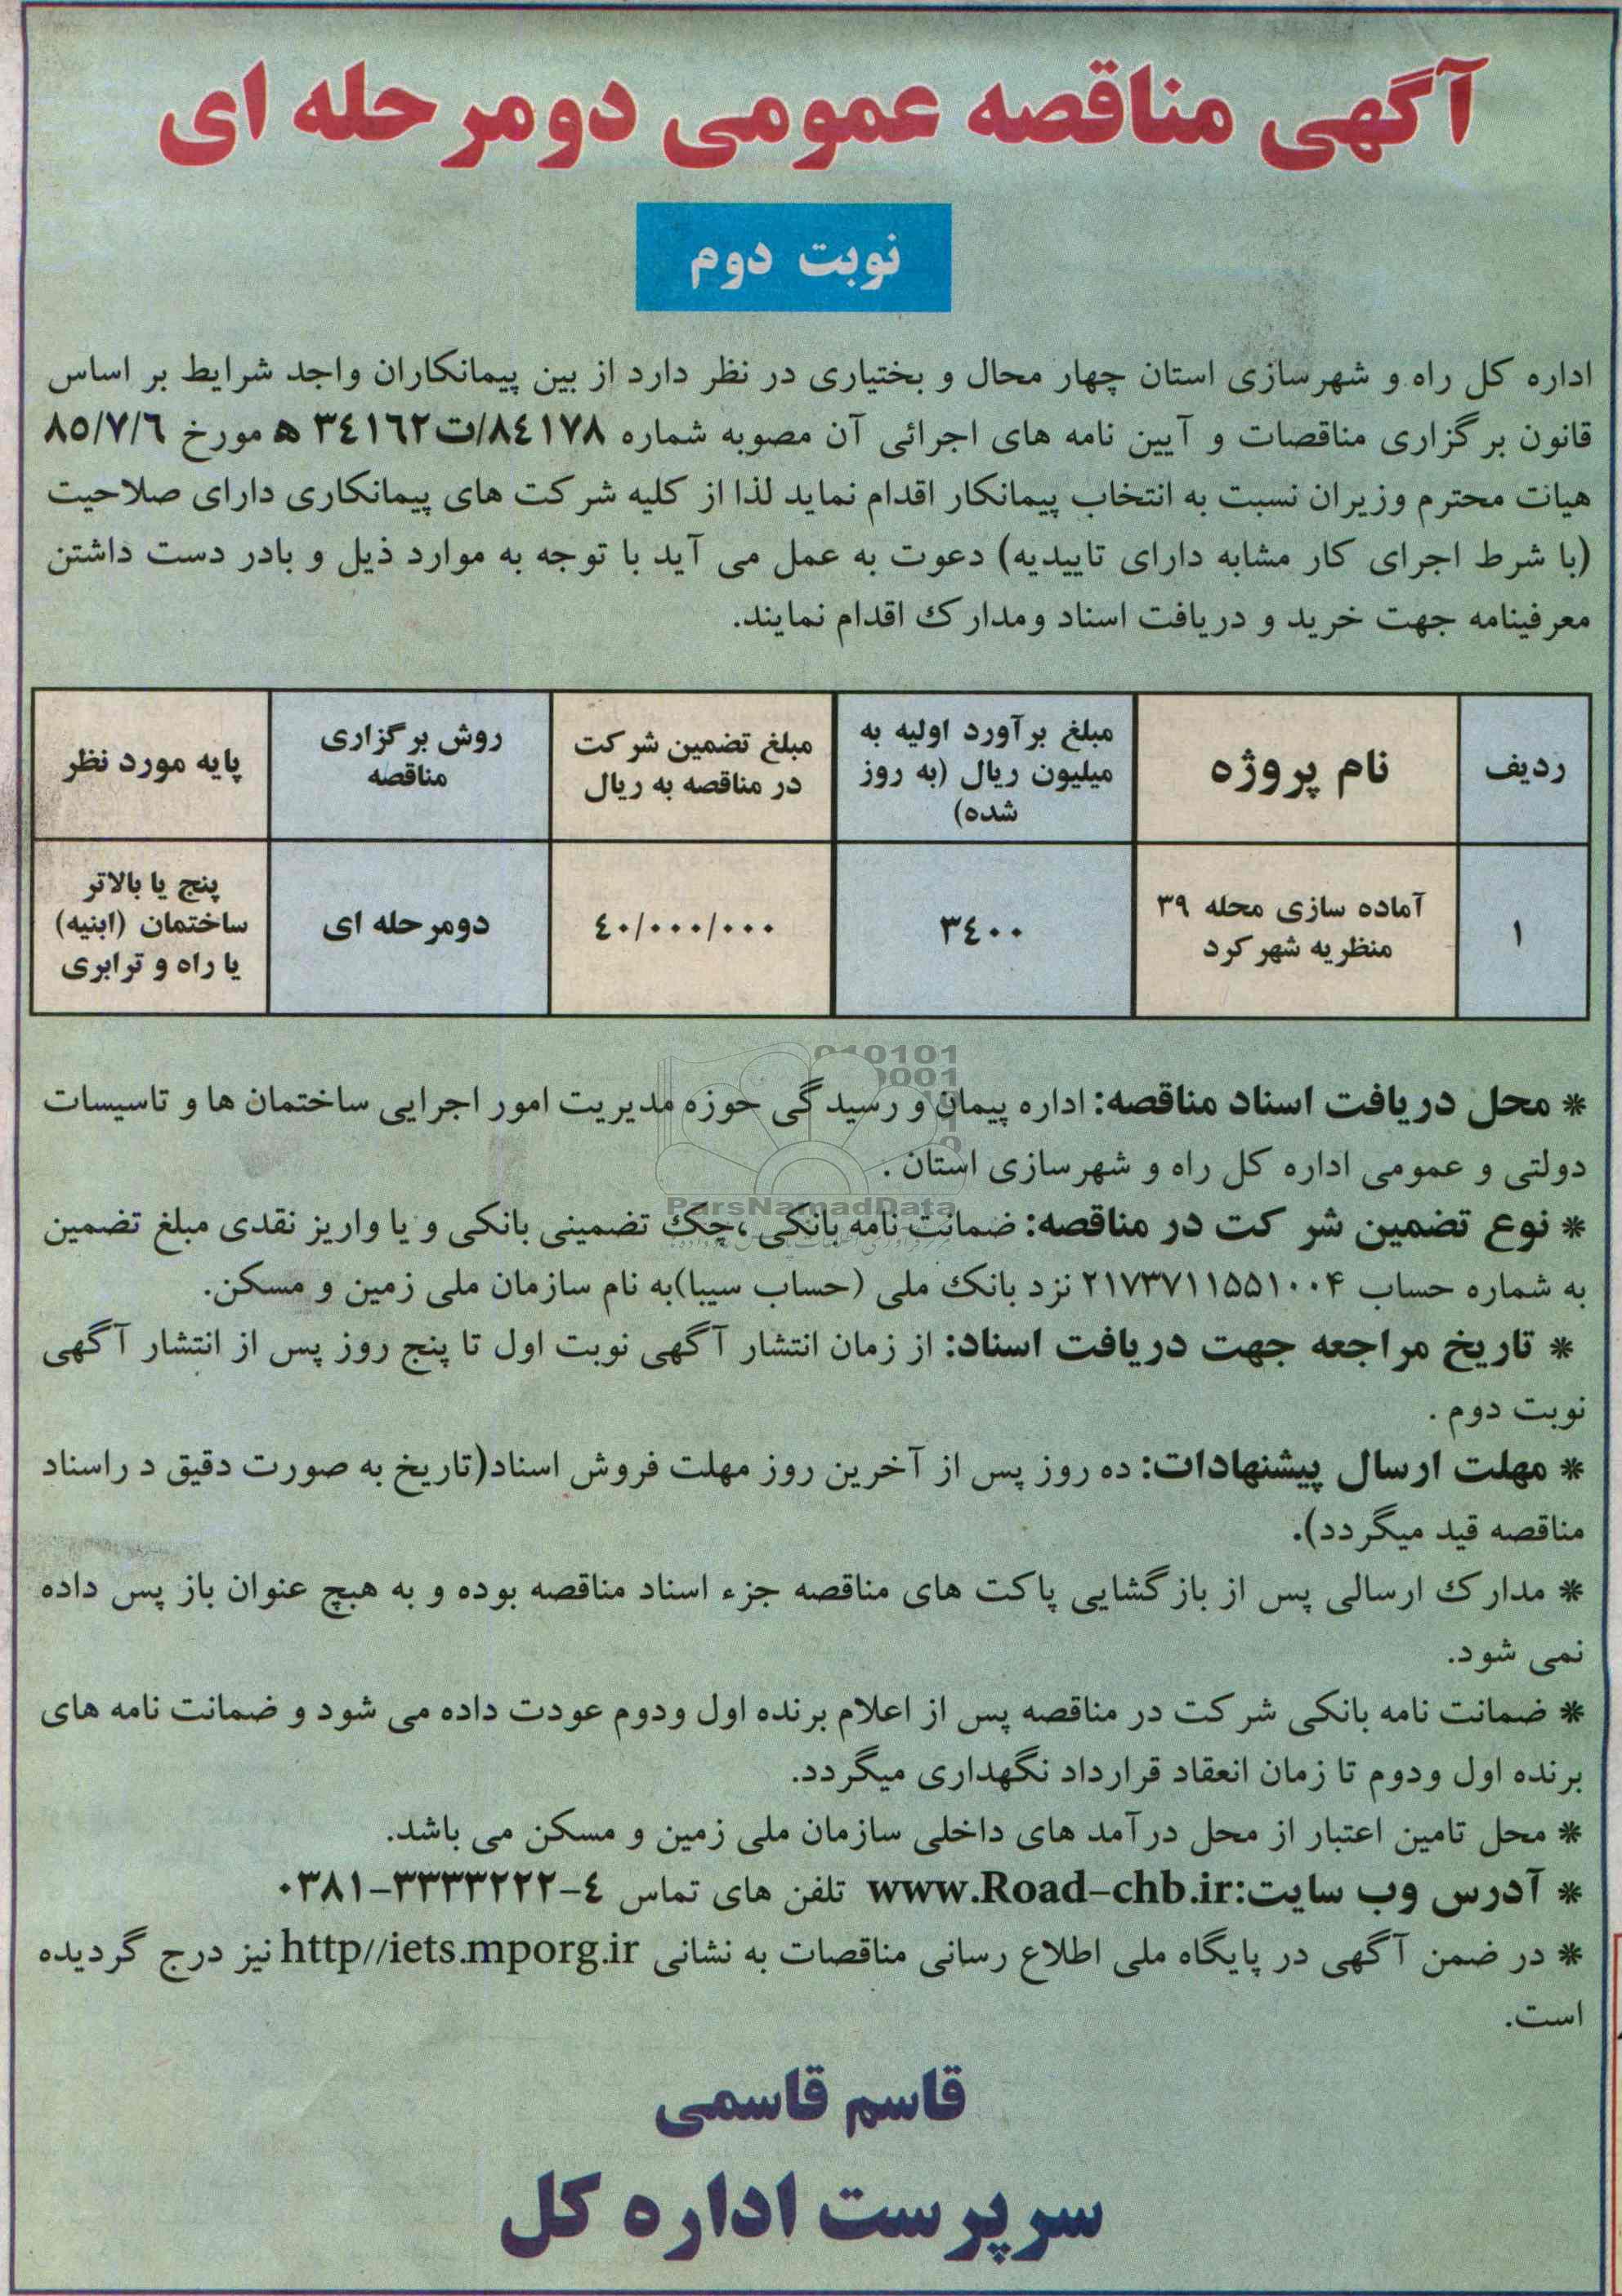 آگهی مناقصه عمومی دومرحله ای
نوبت دوم
اداره کل راه و شهرسازی استان چهار محال و بختیاری در نظر دارد از بین پیمانکاران واجد شرایط بر اساس
قانون برگزاری مناقصات و آیین نامه های اجرائی آن مصوبه شماره ٨٤١٧٨/ت٣٤١٦٢ ه مورخ ٨٥/٧/٦
هیات محترم وزیران نسبت به انتخاب پیمانکار اقدام نماید لذا از کلیه شرکت های پیمانکاری دارای صلاحیت
(با شرط اجرای کار مشابه دارای تاییدیه) دعوت به عمل می آید با توجه به موارد ذیل و بادر دست داشتن
معرفینامه جهت خرید و دریافت اسناد ومدارک اقدام نمایند.
ردیف
نام پروژه
مبلغ برآورد اولیه به
میلیون ریال (به روز
شده)
مبلغ تضمین شرکت
در مناقصه به ریال
روش برگزاری
مناقصه
پایه مورد نظر
١
آماده سازی محله ٣٩
منظریه شهرکرد
٣٤٠٠
٤٠/٠٠٠/٠٠٠
دومرحله ای
پنج یا بالاتر
ساختمان (ابنیه)
یا راه و ترابری
* محل دریافت اسناد مناقصه: اداره پیمان و رسیدگی حوزه مدیریت امور اجرایی ساختمان ها و تاسیسات
دولتی و عمومی اداره کل راه و شهرسازی استان .
ParsNamadData
* نوع تضمین شرکت در مناقصه: ضمانت نامه بانکی ،چک تضمینی بانکی و یا واریز نقدی مبلغ تضمین
به شماره حساب ۲۱۷۳۷۱۱۵۵۱۰۰۴ نزد بانک ملی (حساب سیبا)به نام سازمان ملی زمین و مسکن.
* تاریخ مراجعه جهت دریافت اسناد: از زمان انتشار آگهی نوبت اول تا پنج روز پس از انتشار آگهی
نوبت دوم .
* مهلت ارسال پیشنهادات: ده روز پس از آخرین روز مهلت فروش اسناد(تاریخ به صورت دقیق د راسناد
مناقصه قید میگردد).
* مدارک ارسالی پس از بازگشایی پاکت های مناقصه جزء اسناد مناقصه بوده و به هیچ عنوان باز پس داده
نمی شود.
* ضمانت نامه بانکی شرکت در مناقصه پس از اعلام برنده اول ودوم عودت داده می شود و ضمانت نامه های
برنده اول ودوم تا زمان انعقاد قرارداد نگهداری میگردد.
* محل تامین اعتبار از محل درآمد های داخلی سازمان ملی زمین و مسکن می باشد.
* آدرس وب سایت:www.Road-chb.ir تلفن های تماس ٤-٣٣٣٣٢٢٢-٠٣٨١
* در ضمن آگهی در پایگاه ملی اطلاع رسانی مناقصات به نشانی http//iets.mporg.ir نیز درج گردیده
است.
قاسم قاسمی
سرپرست اداره کل